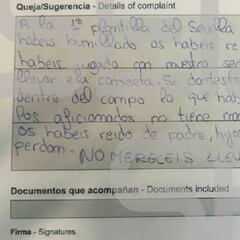 Queja/Sugerencia - Details of complaint
A la 1ª plantilla del Sevilla
habeis humillado os habeis re
habeis jugado con nuestro sen
llevar la camiseta. Si
dentro del campo lo que hab
los aficionados no tiene
os habeis reido de padre, hijos
perdon. NO MERECEIS LLEV
Documentos que acompañan - Documents included
Firma - Signatures